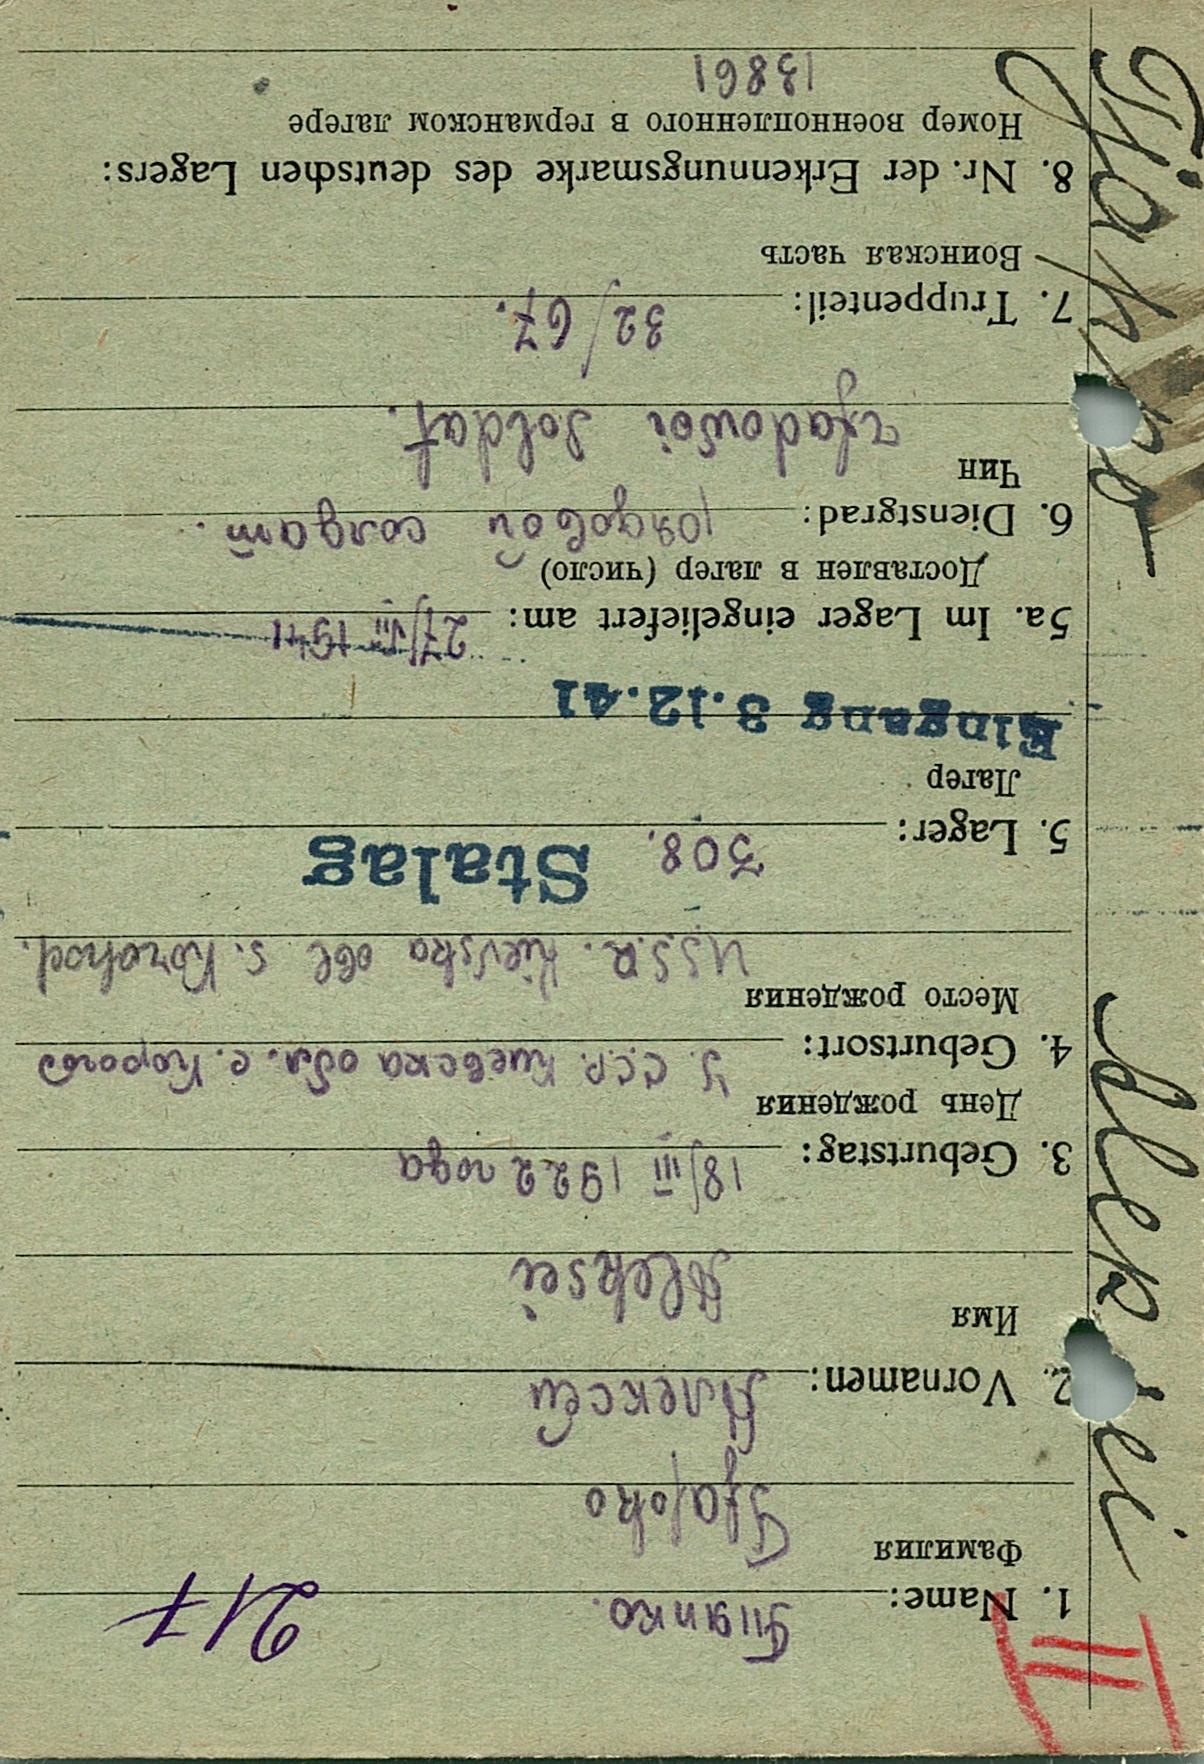 217
1. Name: Тиянко.
Фамилия
2. Vornamen: Алексей
Имя
Aleksei
3. Geburtstag: 18/III 1922 года
День рождения
4. Geburtsort: У.С.С.Р. Киевска обл. с. Корогод
Место рождения
U.S.S.R. Kievska obl s. Korohod.
5. Lager: 308. Stalag
Лагер
Eingang 3.12.41
5a. Im Lager eingeliefert am: 27/VII 1941
Доставлен в лагер (число)
6. Dienstgrad: рядовой солдат.
Чин
rjadowoi soldat.
7. Truppenteil: 32/67.
Воинская часть
8. Nr. der Erkennungsmarke des deutschen Lagers:
Номер военнопленного в германском лагере
13861
III